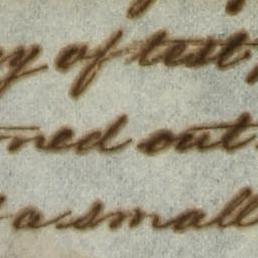 y of test
ned out
a small